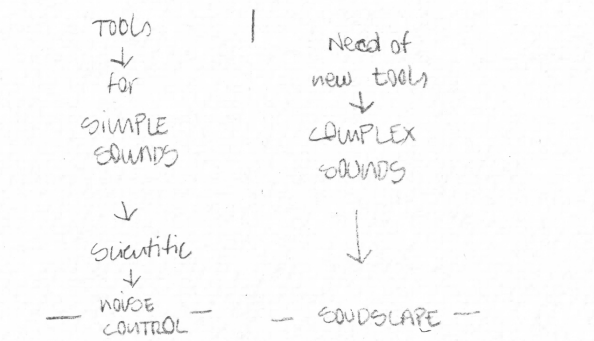 TOOLS
↓
for
SIMPLE
SOUNDS
↓
Scientific
↓
NOISE
CONTROL
Need of
new tools
↓
COMPLEX
SOUNDS
↓
SOUDSCAPE